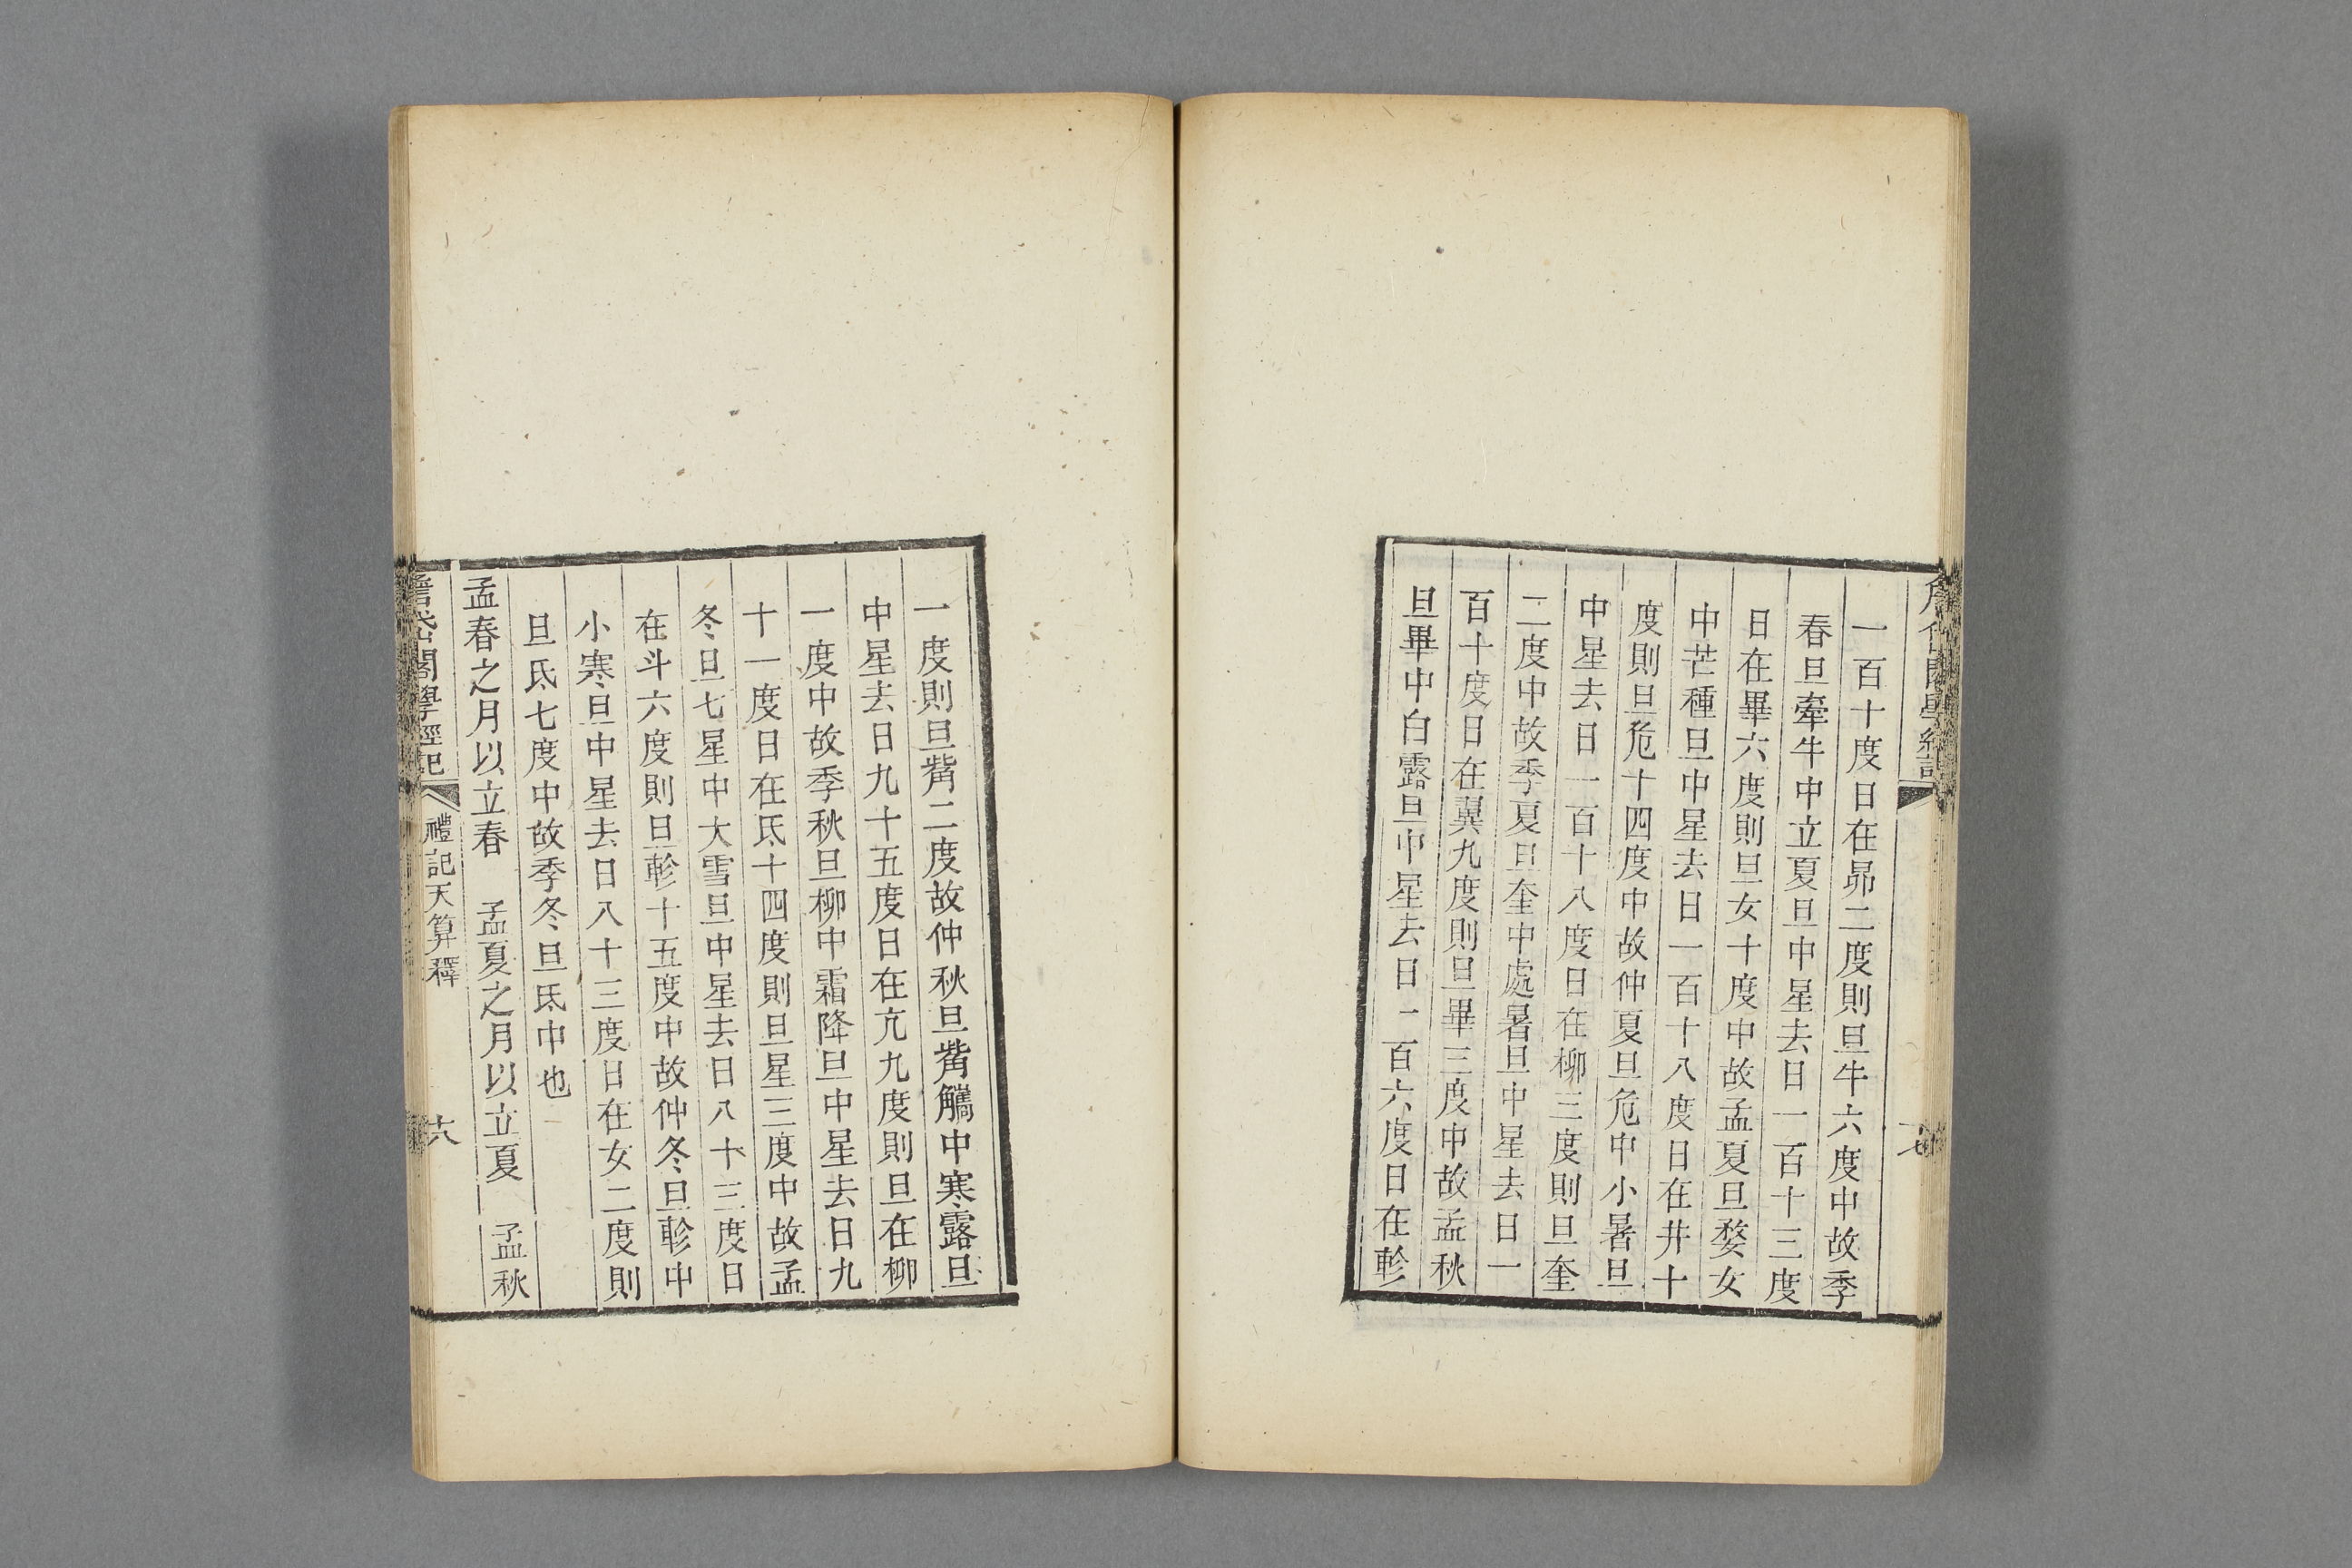 一百十度日在昴二度則旦牛六度中故季
春旦牽牛中立夏旦中星去日一百十三度
日在畢六度則旦女十度中故孟夏旦婺女
中芒種旦中星去日一百十八度日在井十
度則旦危十四度中故仲夏旦危中小暑旦
中星去日一百十八度日在柳三度則旦奎
二度中故季夏旦奎中處暑旦中星去日一
百十度日在翼九度則旦畢三度中故孟秋
旦畢中白露旦中星去日一百六度日在軫
一度則旦觜二度故仲秋旦觜觿中寒露旦
中星去日九十五度日在亢九度則旦在柳
一度中故季秋旦柳中霜降旦中星去日九
十一度日在氐十四度則旦星三度中故孟
冬旦七星中大雪旦中星去日八十三度日
在斗六度則旦軫十五度中故仲冬旦軫中
小寒旦中星去日八十三度日在女二度則
旦氐七度中故季冬旦氐中也
孟春之月以立春　孟夏之月以立夏　孟秋
學經記　禮記天算釋　十八